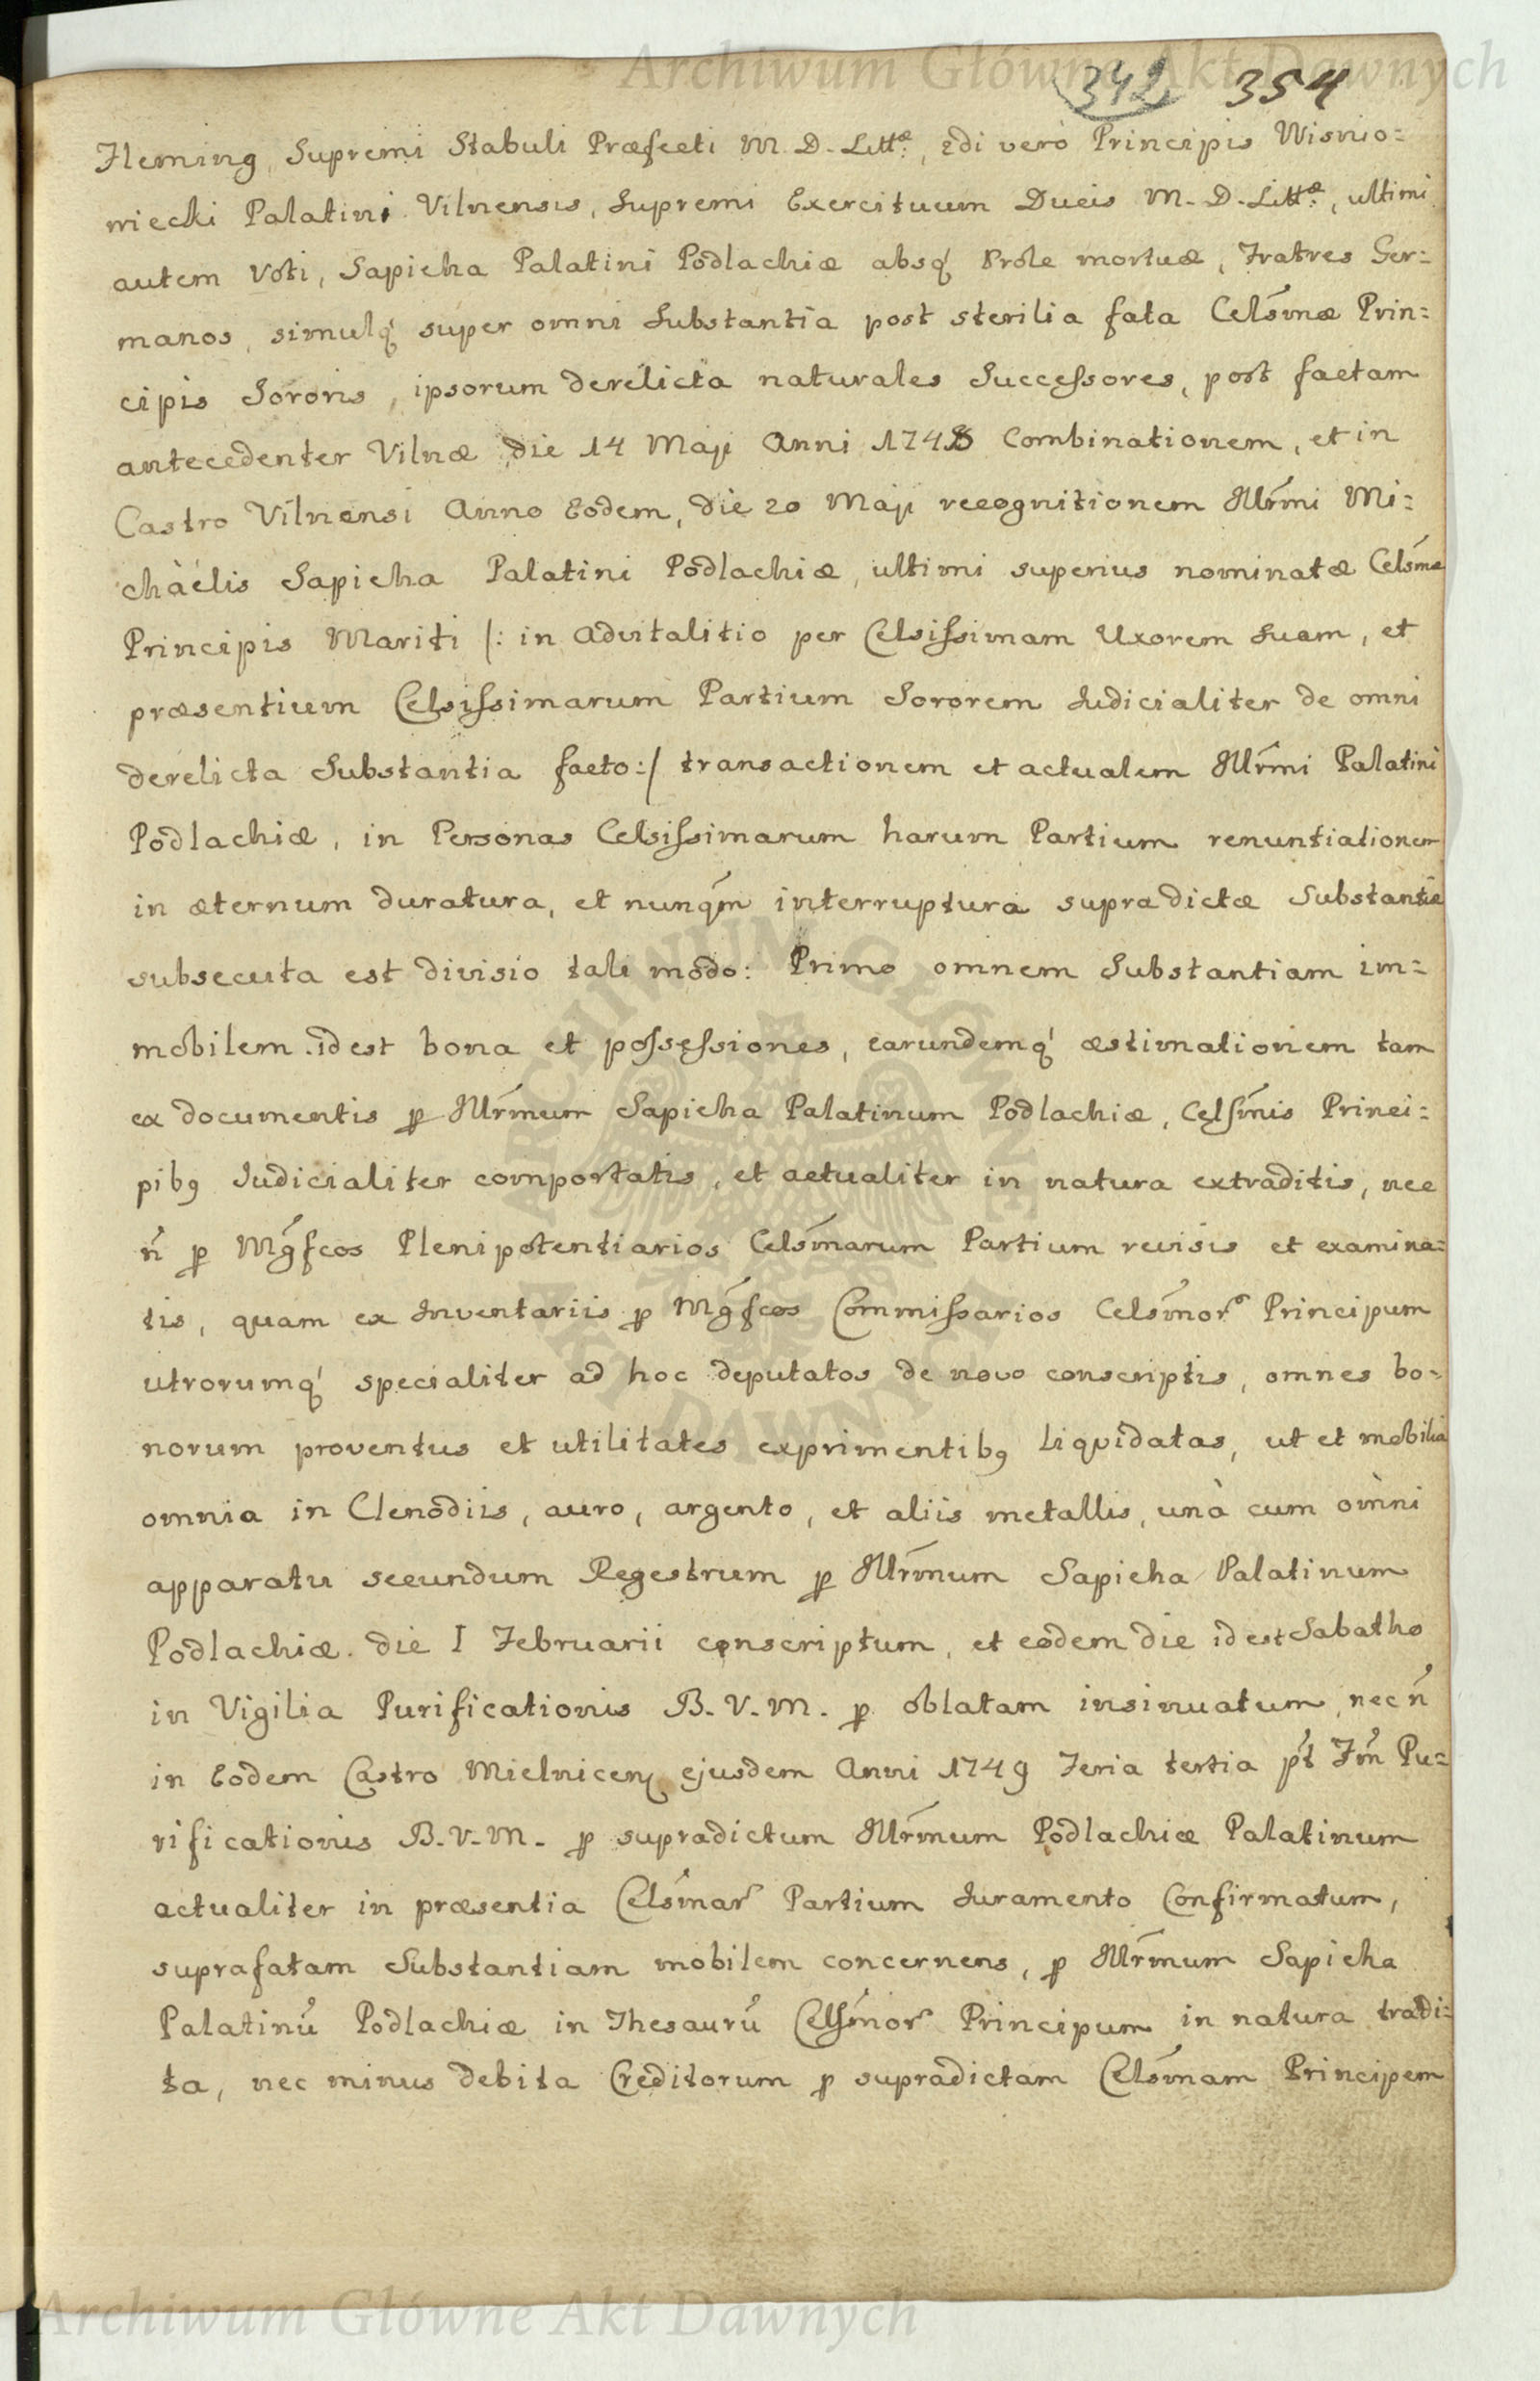 Archiwum Główne Akt Dawnych
342 354
Fleming, Supremi Stabuli Præfecti M. D. Littæ:, 2di verò Principis Wisnio=
wiecki Palatini Vilnensis, Supremi Exercituum Ducis M. D. Littæ:, ultimi
autem Voti, Sapieha Palatini Podlachiæ absq́ Prole mortuæ, Fratres Ger=
manos, simulq́ super omni Substantia post sterilia fata Celsḿæ Prin=
cipis Sororis, ipsorum derelicta naturales Successores, post factam
antecedenter Vilnæ die 14 Maji Anni 1748 Combinationem, et in
Castro Vilnensi Anno Eodem, die 20 Maji recognitionem Illrḿi Mi=
chàélis Sapieha Palatini Podlachiæ, ultimi superius nominatæ Celsḿæ
Principis Mariti /: in Advitalitio per Celsissimam Uxorem Suam, et
præsentium Celsissimarum Partium Sororem Judicialiter de omni
derelicta Substantia facto:/ transactionem et actualem Illrḿi Palatini
Podlachiæ, in Personas Celsissimarum harum Partium renuntiationem
in æternum duratura, et nunqḿ interruptura supradictæ Substantiæ
subsecuta est divisio tali modo: Primo omnem Substantiam im=
mobilem idest bona et possessiones, earundemq́ æstimationem tam
ex documentis ꝑ Illrḿum Sapieha Palatinum Podlachiæ, Celsḿis Princi=
pibꝯ Judicialiter comportatis, et actualiter in natura extraditis, nec
ń ꝑ Mǵfcos Plenipotentiarios Celsḿarum Partium revisis et examina=
tis, quam ex Inventariis ꝑ Mǵfcos Commissarios Celsḿorͬ Principum
utrorumq́ specialiter ad hoc deputatos de novo conscriptis, omnes bo=
norum proventus et utilitates exprimentibꝯ liquidatas, ut et mobilia
omnia in Clenodiis, auro, argento, et aliis metallis, unà cum omni
apparatu secundum Regestrum ꝑ Illrḿum Sapieha Palatinum
Podlachiæ die I Februarii conscriptum, et eodem die idest Sabatho
in Vigilia Purificationis B. V. M. ꝑ oblatam insinuatum, nec ń
in Eodem Castro Mielnicen ejusdem Anni 1749 Feria tertia pt́ Fḿ Pu=
rificationis B. V. M. ꝑ supradictum Illrḿum Podlachiæ Palatinum
actualiter in præsentia Celsḿarͬ Partium Juramento Confirmatum,
suprafatam Substantiam mobilem concernens, ꝑ Illrḿum Sapieha
Palatinú Podlachiæ in Thesaurú Celsḿorͬ Principum in natura tradi=
ta, nec minus debita Creditorum ꝑ supradictam Celsḿam Principem
ARCHIWUM GŁÓWNE AKT DAWNYCH
Archiwum Główne Akt Dawnych